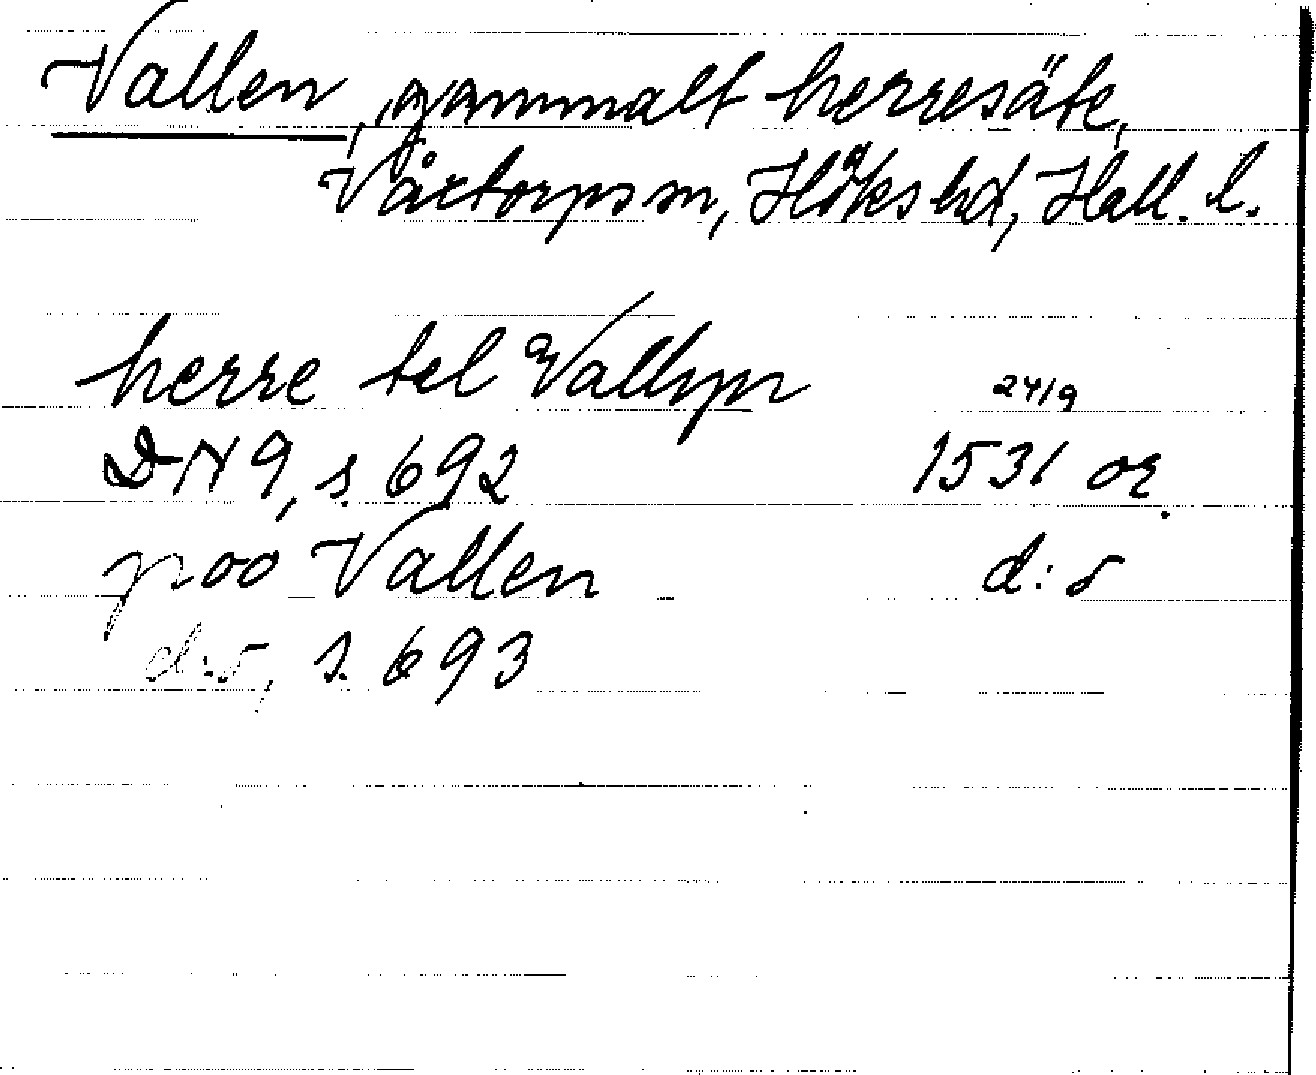 Vallen, gammalt herresäte,
Våxtorps sn, Höks hd, Hall. l.
herre tel Vallyn
24/9
DN 9, s. 692 1531 or.
poo Vallen d:o
d:o, s. 693